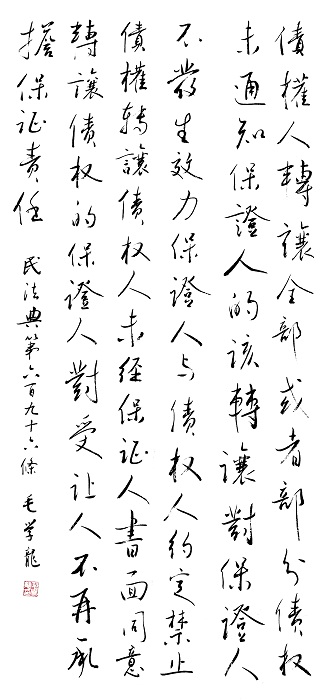 債權人轉讓全部或者部分債权
未通知保證人的该轉讓對保證人
不發生效力保證人与债权人约定禁止
債權转讓债权人未经保证人書面同意
轉讓债权的保證人對受让人不再承
擔保证责任
民法典第六百九十六條 毛学龍